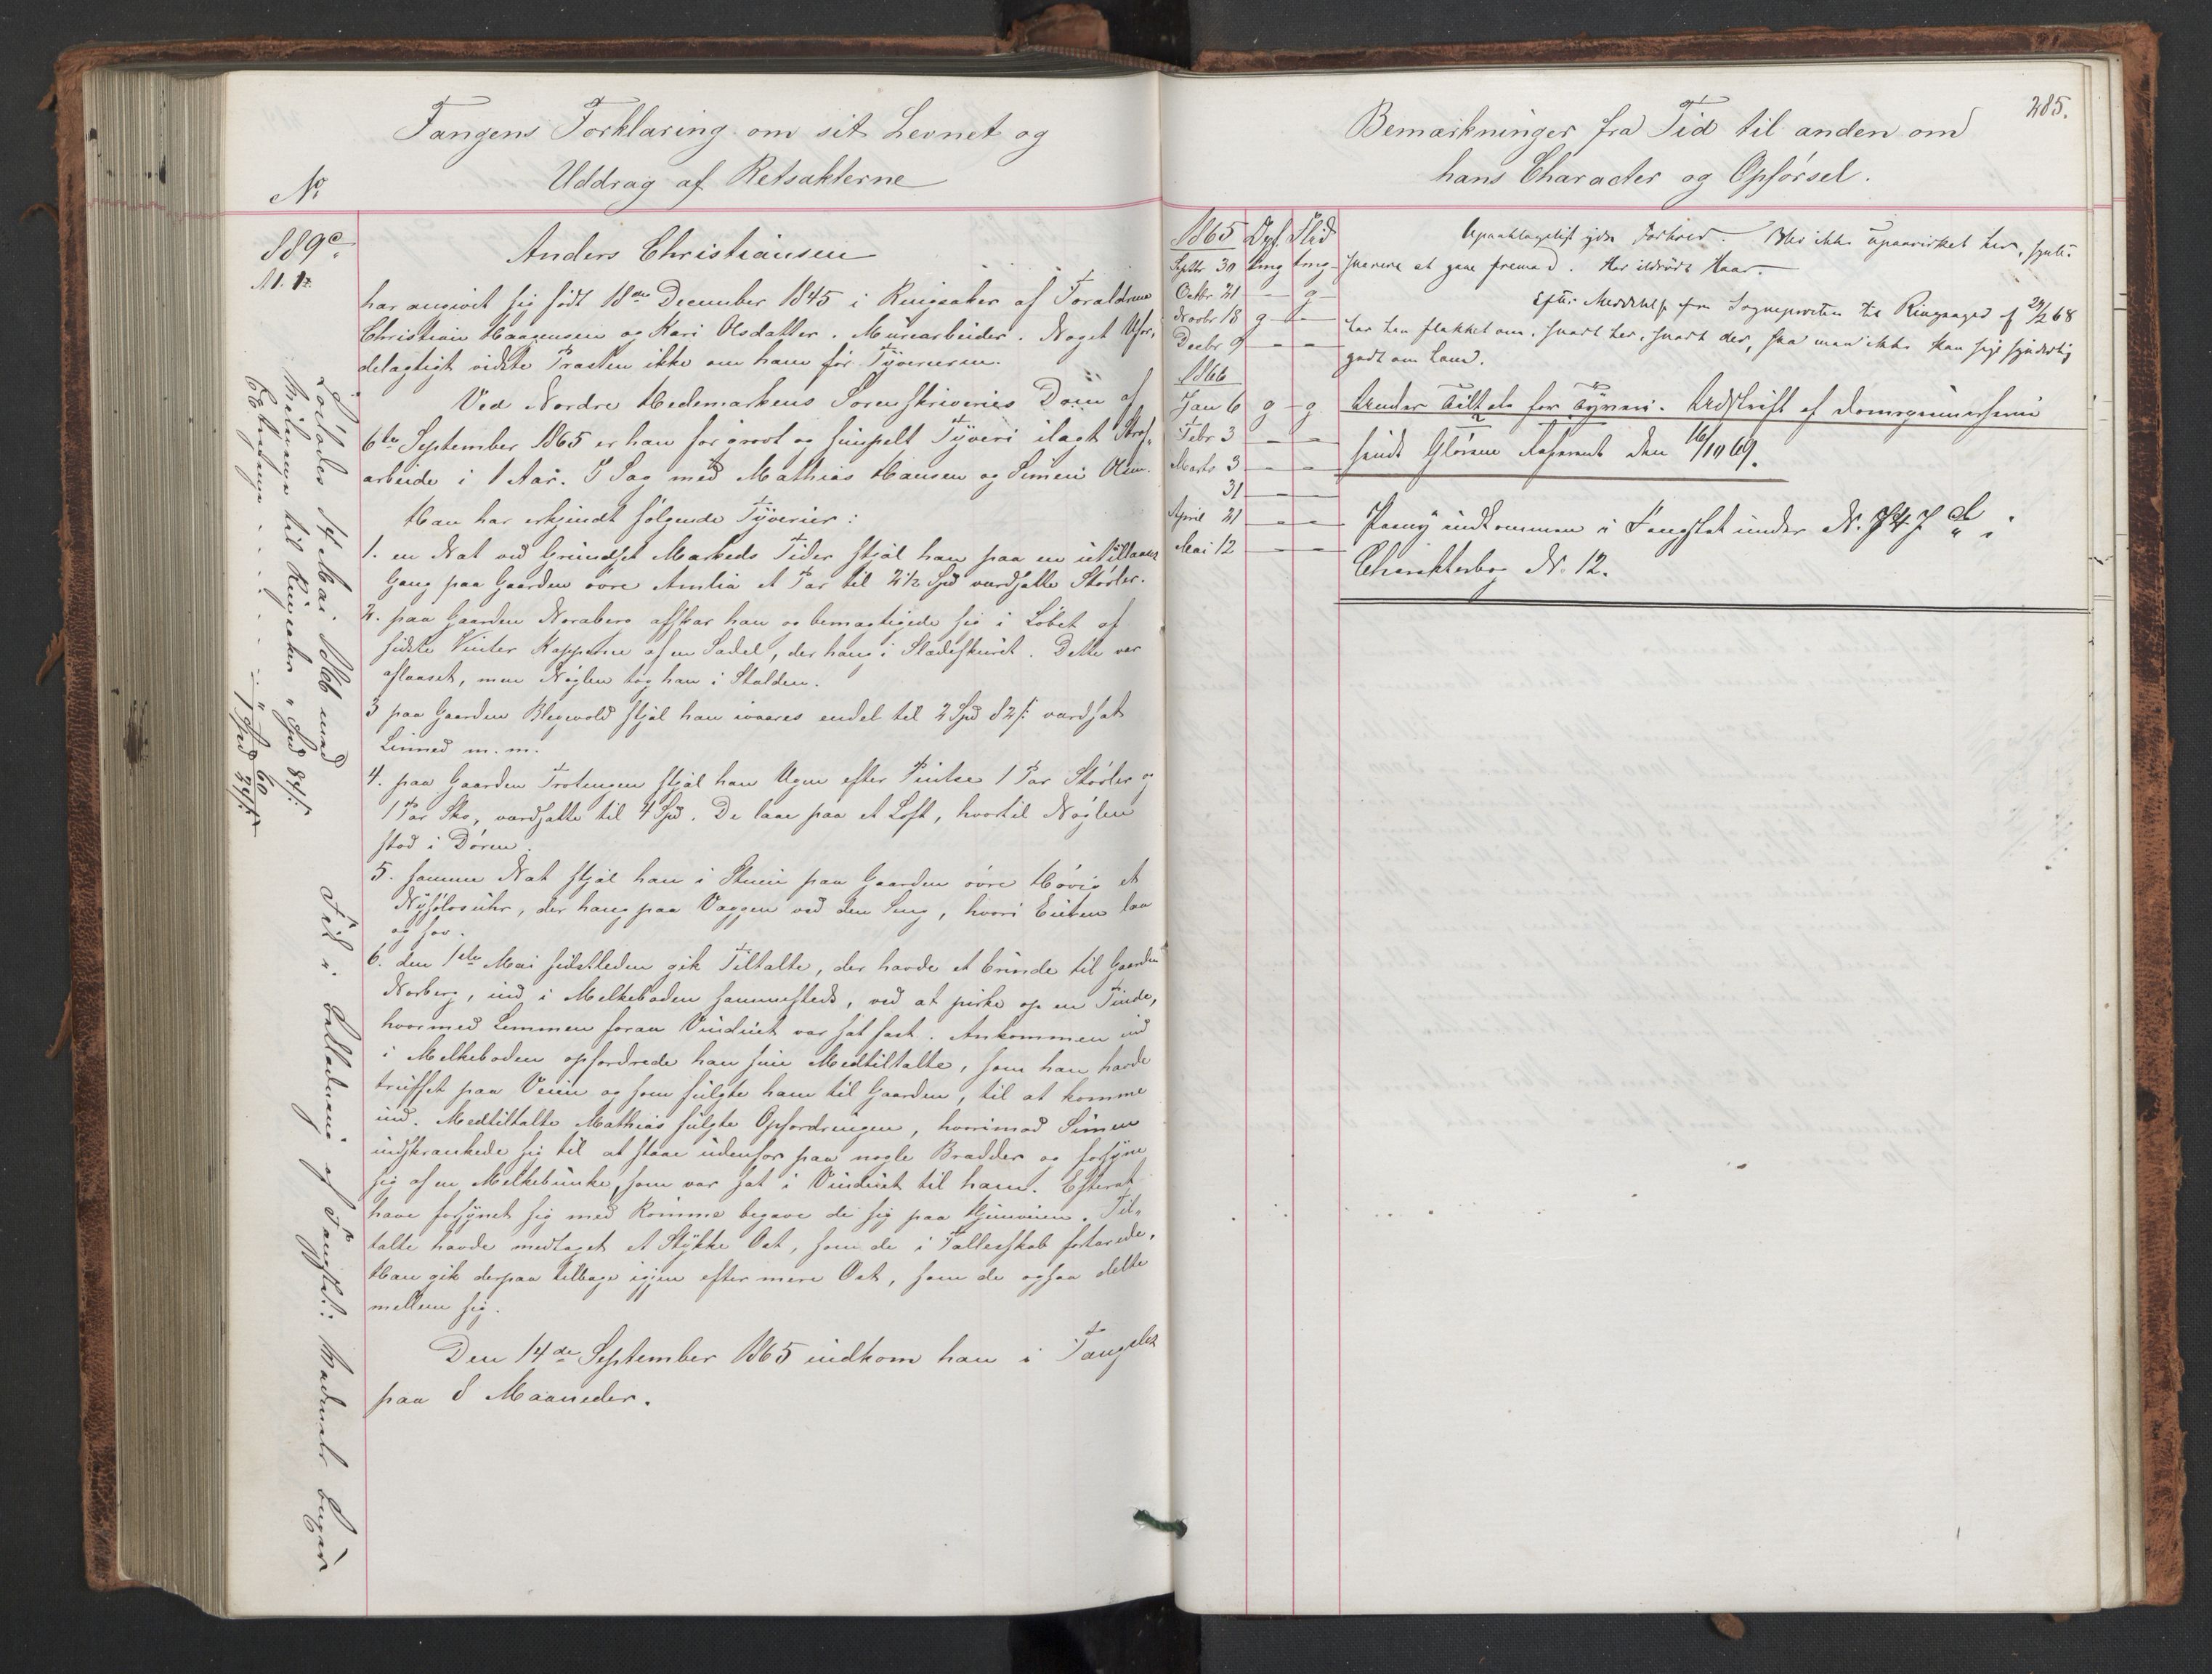 Fangens Forklaring om sit Levnet og
Uddrag af Retsakterne
No
889c.
Anders Christiansen
har angivet sig født 18de December 1845 i Ringsaker af Forældrene
Christian Haagensen og Kari Olsdatter. Murarbeider. Noget Ufor-
delagtigt vidste Præsten ikke om ham før Tyverierne.
Ved Nordre Hedemarkens Sorenskriveries Dom af
6te September 1865 er han for grovt og simpelt Tyveri ilagt Straf-
arbeide i 1 Aar. I Sag med Mathias Hansen og Simen Olsen.
Han har erkjendt følgende Tyverier:
1. en Nat ved Grundset Markeds Tider stjal han paa en
Gang paa Gaarden øvre Amlia et Par til 2 1/2 Spd værdsatte Støvler.
2. paa Gaarden Noraberg afskar han og bemægtigede sig i Løbet af
sidste Vinter Kapperne af en Sadel, der hang i Slædeskuret. Dette var
aflaaset, men Nøglen tog han i Stalden.
3 paa Gaarden stjal han endel til 2 Spd 82 s: værdsat
Linned m. m.
4. paa Gaarden Frotungen stjal han Ugen efter Pintse 1 Par Støvler og
1 Par Sko, værdsatte til 4 Spd. De laae paa et Loft, hvortil Nøglen
stod i Døren.
5. samme Nat stjal han i Stuen paa Gaarden øvre Høvig et
Nysølvsuhr, der hang paa Væggen ved den Seng, hvori Eieren laa
og sov.
6. den 1ste Mai sidstleden gik Tiltalte, der havde et Ærinde til Gaarden
Norberg, ind i Melkeboden sammesteds, ved at pirke op en Pinde,
hvormed Lemmen foran Vinduet var sat fast. Ankommen ind
i Melkeboden opfordrede han sine Medtiltalte, som han havde
truffet paa Veien og som fulgte ham til Gaarden, til at komme
ind. Medtiltalte Mathias fulgte Opfordringen, hvorimod Simen
indskrænkede sig til at staae udenfor paa nogle Brædder og forsyne
sig af en Melkebunke, som var sat i Vinduet til ham. Efterat
have forsynet sig med Rømme begave de sig paa Hjemveien. Til-
talte havde medtaget et Stykke Ost, som de i Fællesskab fortærede.
Han gik derpaa tilbage igjen efter mere Ost, som de ogsaa delte
mellem sig.
Den 14de September 1865 indkom han i Fængslet
paa 8 Maaneder.
Løslades 14 Mai 1866 med
til Ringsaker " Spd 84 s:
" " 60
1 Spd 24 s:
Tid i
285.
Bemærkninger fra Tid til anden om
hans Character og Opførsel.
1865 Opf. Flid
Septbr 30 tmg tmg
Octbr 21 — g
Novbr 18 g —
Decbr 9 — —
1866
Jan 6 g g
Febr 3 — —
Marts 3 — —
31 — —
April 21 — —
Mai 12 — —
Upaaklageligt ydre Forhold. Blev ikke upaavirket her, synes
at gaae fremad. Har ildrødt Haar.
Efter Meddelelse fra Sognepræsten til Ringsager af 29/2 68
har han flakket om, snart her, snart der, saa man ikke kan sige synderlig
godt om ham.
Under Tiltale for Tyveri. Udskrift af
sendt den 16/10 69.
Paany indkommen i Fængslet under No. 747
Charakterbog No. 12.